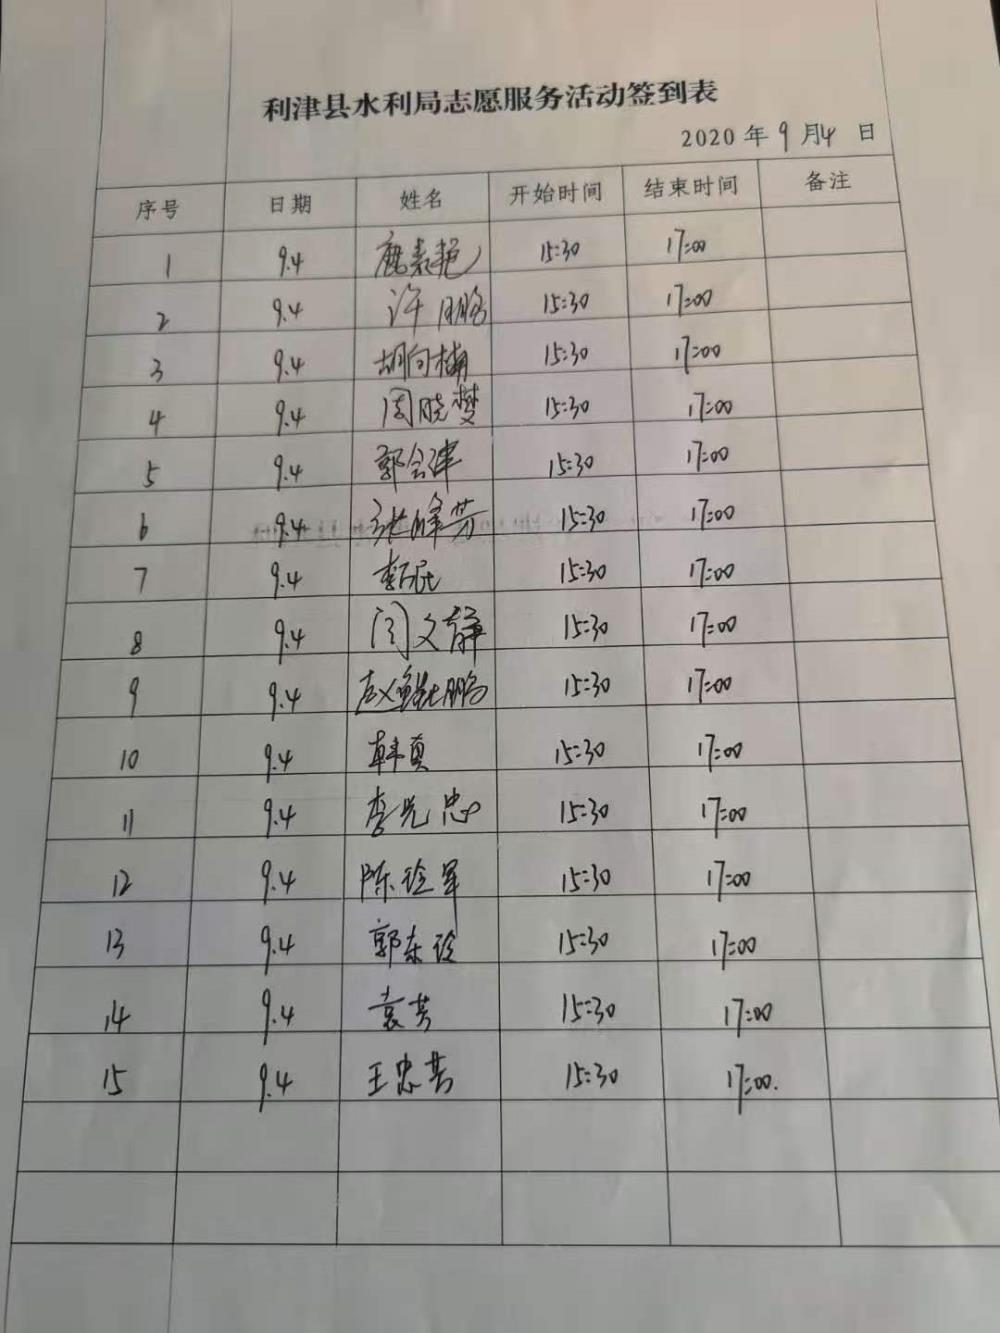 利津县水利局志愿服务活动签到表
2020 年 9 月 4 日
序号 日期 姓名 开始时间 结束时间 备注
1 9.4 鹿素艳 15:30 17:00
2 9.4 许朋鹏 15:30 17:00
3 9.4 胡向楠 15:30 17:00
4 9.4 周晓梦 15:30 17:00
5 9.4 郭会津 15:30 17:00
6 9.4 张峰芳 15:30 17:00
7 9.4 15:30 17:00
8 9.4 闫文静 15:30 17:00
9 9.4 赵鲲鹏 15:30 17:00
10 9.4 韩真 15:30 17:00
11 9.4 李光忠 15:30 17:00
12 9.4 陈玲军 15:30 17:00
13 9.4 郭东玲 15:30 17:00
14 9.4 袁芳 15:30 17:00
15 9.4 王忠芳 15:30 17:00.